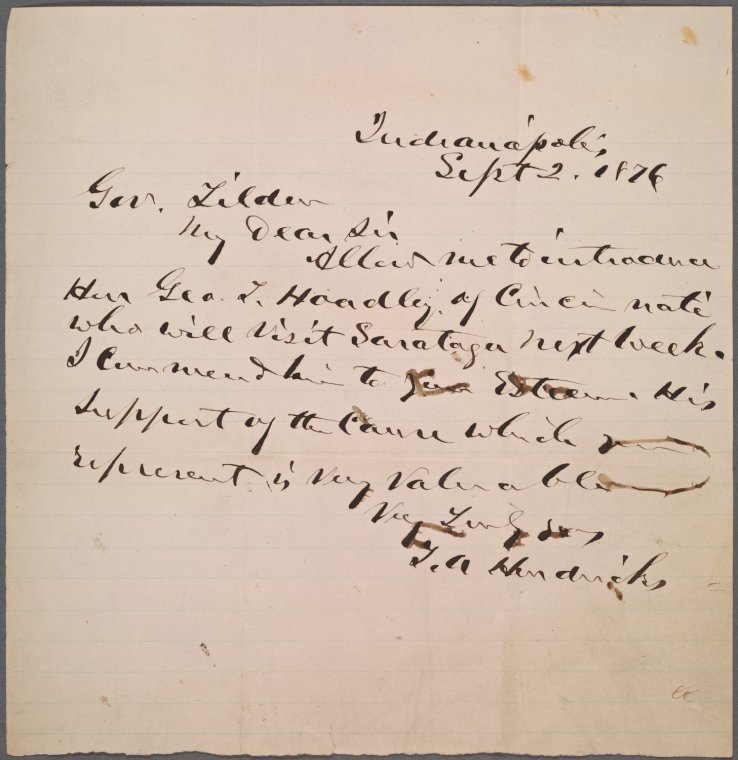 Indianapolis,
Sept 2. 1876
Gov. Tilden
My Dear Sir
Allow me to introduce
Hon Geo. L. Hoadley, of Cincinnati
who will visit Saratoga next week.
I commend him to your Esteem. His
support of the Cause which you
represent is very valuable
Very Truly yours
T. A Hendricks